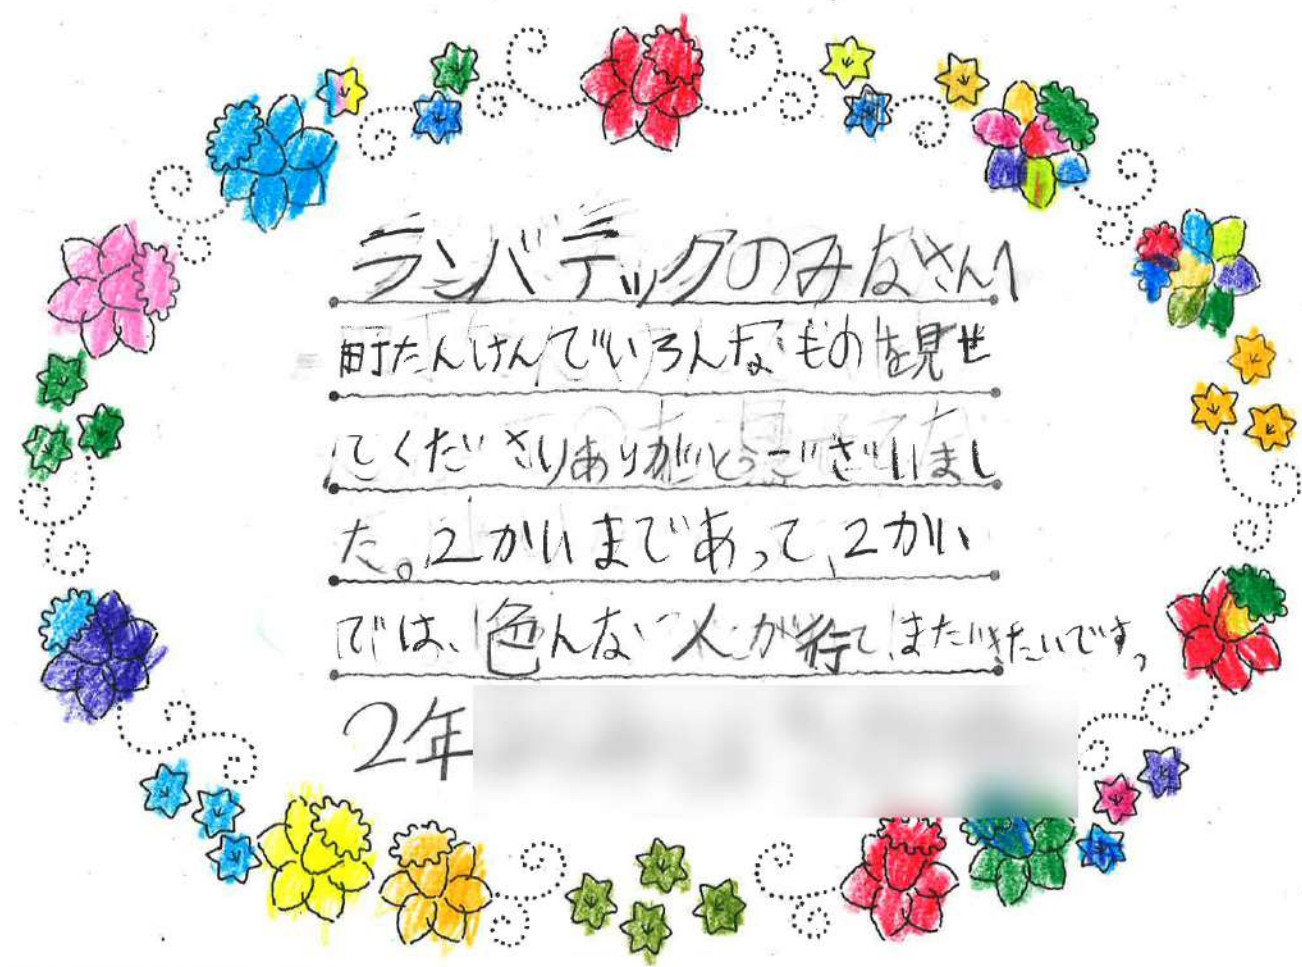 ランバデックのみなさんへ
町たんけんでいろんなものを見せ
てくださりありがとうございまし
た。2かいまであって、2かい
では、色んな人が行てまたいきたいです。
2年